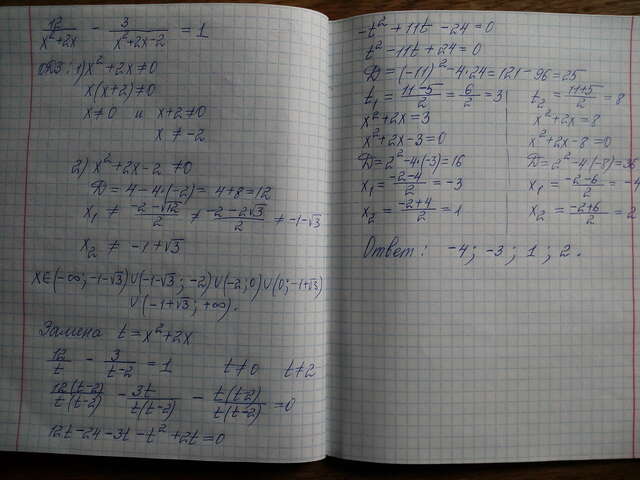 12/(x²+2x) - 3/(x²+2x-2) = 1
ОДЗ: 1) x²+2x≠0
x(x+2)≠0
x≠0 и x+2≠0
x ≠ -2
2) x²+2x-2 ≠0
D = 4-4·(-2) = 4+8=12
x₁ ≠ (-2-√12)/2 ≠ (-2-2√3)/2 ≠ -1-√3
x₂ ≠ -1+√3
x∈(-∞; -1-√3)∪(-1-√3; -2)∪(-2;0)∪(0;-1+√3)
∪(-1+√3; +∞).
Замена t = x²+2x
12/t - 3/(t-2) = 1 t≠0 t≠2
12(t-2)/t(t-2) - 3t/t(t-2) - t(t-2)/t(t-2) =0
12t-24-3t-t²+2t=0
-t²+11t-24=0
t²-11t+24=0
D=(-11)²-4·24=121-96=25
t₁ = (11-5)/2 = 6/2 = 3 t₂ = (11+5)/2 = 8
x²+2x=3 x²+2x=8
x²+2x-3=0 x²+2x-8=0
D=2²-4·(-3)=16 D=2²-4·(-8)=36
x₁ = (-2-4)/2 = -3 x₁ = (-2-6)/2 = -4
x₂ = (-2+4)/2 = 1 x₂ = (-2+6)/2 = 2
Ответ: -4; -3; 1; 2.